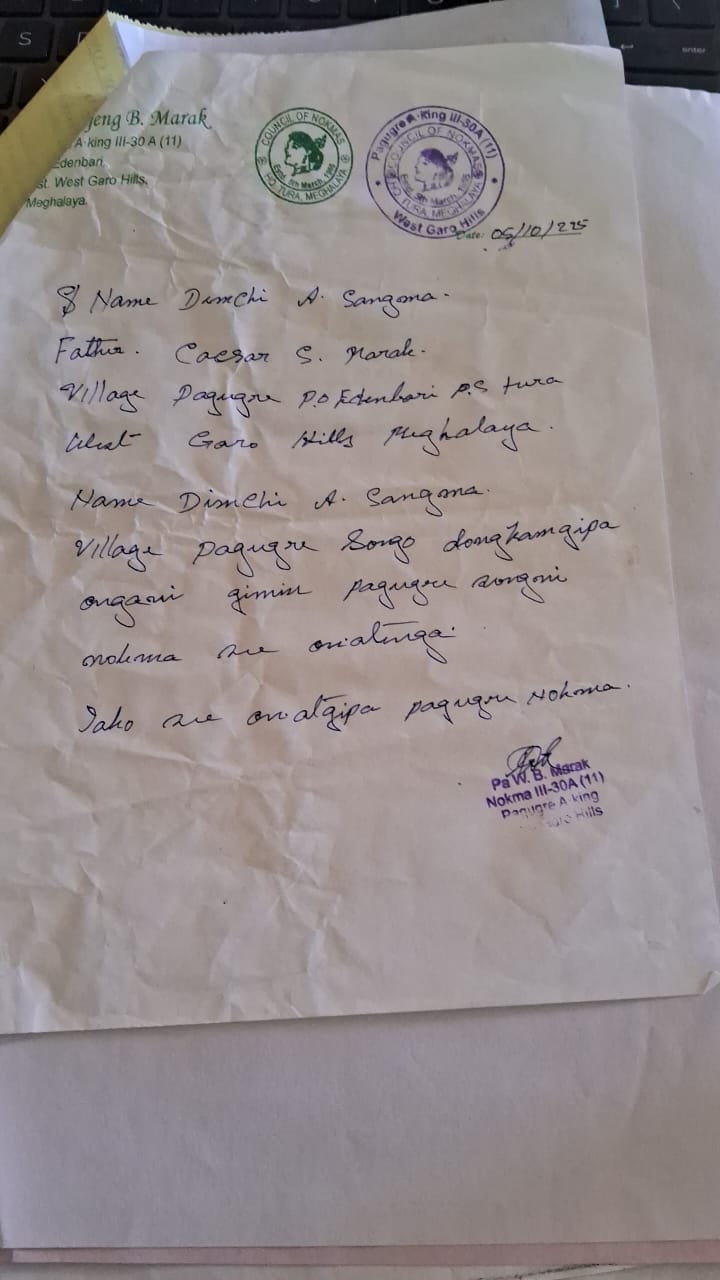 jeng B. Marak
A·king III-30 A (11)
Edenbari,
st. West Garo Hills,
Meghalaya.
COUNCIL OF NOKMAS
Estd. 5th March, 1986
HQ. TURA, MEGHALAYA
Pagugre A·king III-30A (11)
COUNCIL OF NOKMAS
Estd. 5th March, 1986
HQ. TURA, MEGHALAYA
West Garo Hills
Date: 05/10/225
Name Dimchi A. Sangma.
Father. Caesar S. Marak.
Village Pagugre P.O Edenbari P.S tura
West Garo Hills Meghalaya.
Name Dimchi A. Sangma.
Village pagugre Songo dongkamgipa
ongani gimin pagugre songni
nokma ine on·atenga.
Iako ine on·atgipa pagugre Nokma.
Pa W. B. Marak
Nokma III-30A (11)
Pagugre A·king
Garo Hills
S
enter